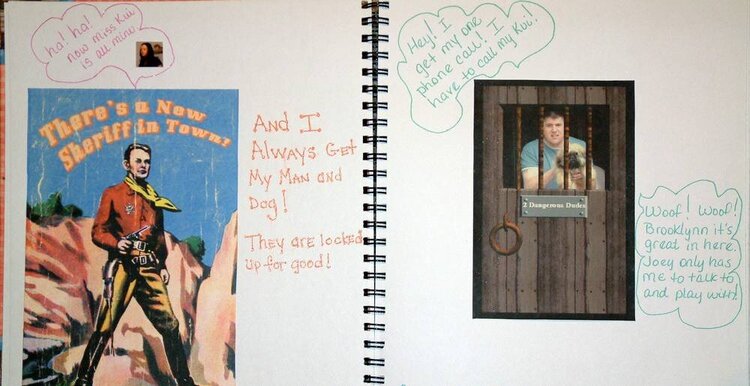 ha! ha!
now Miss Kui
is all mine.
There's a New
Sheriff in Town!
And I
Always Get
My Man and
Dog!
They are locked
up for good!
Hey! I
get my one
phone call! I
have to call my Kui!
2 Dangerous Dudes
Woof! Woof!
Brooklynn it's
great in here.
Joey only has
me to talk to
and play with!